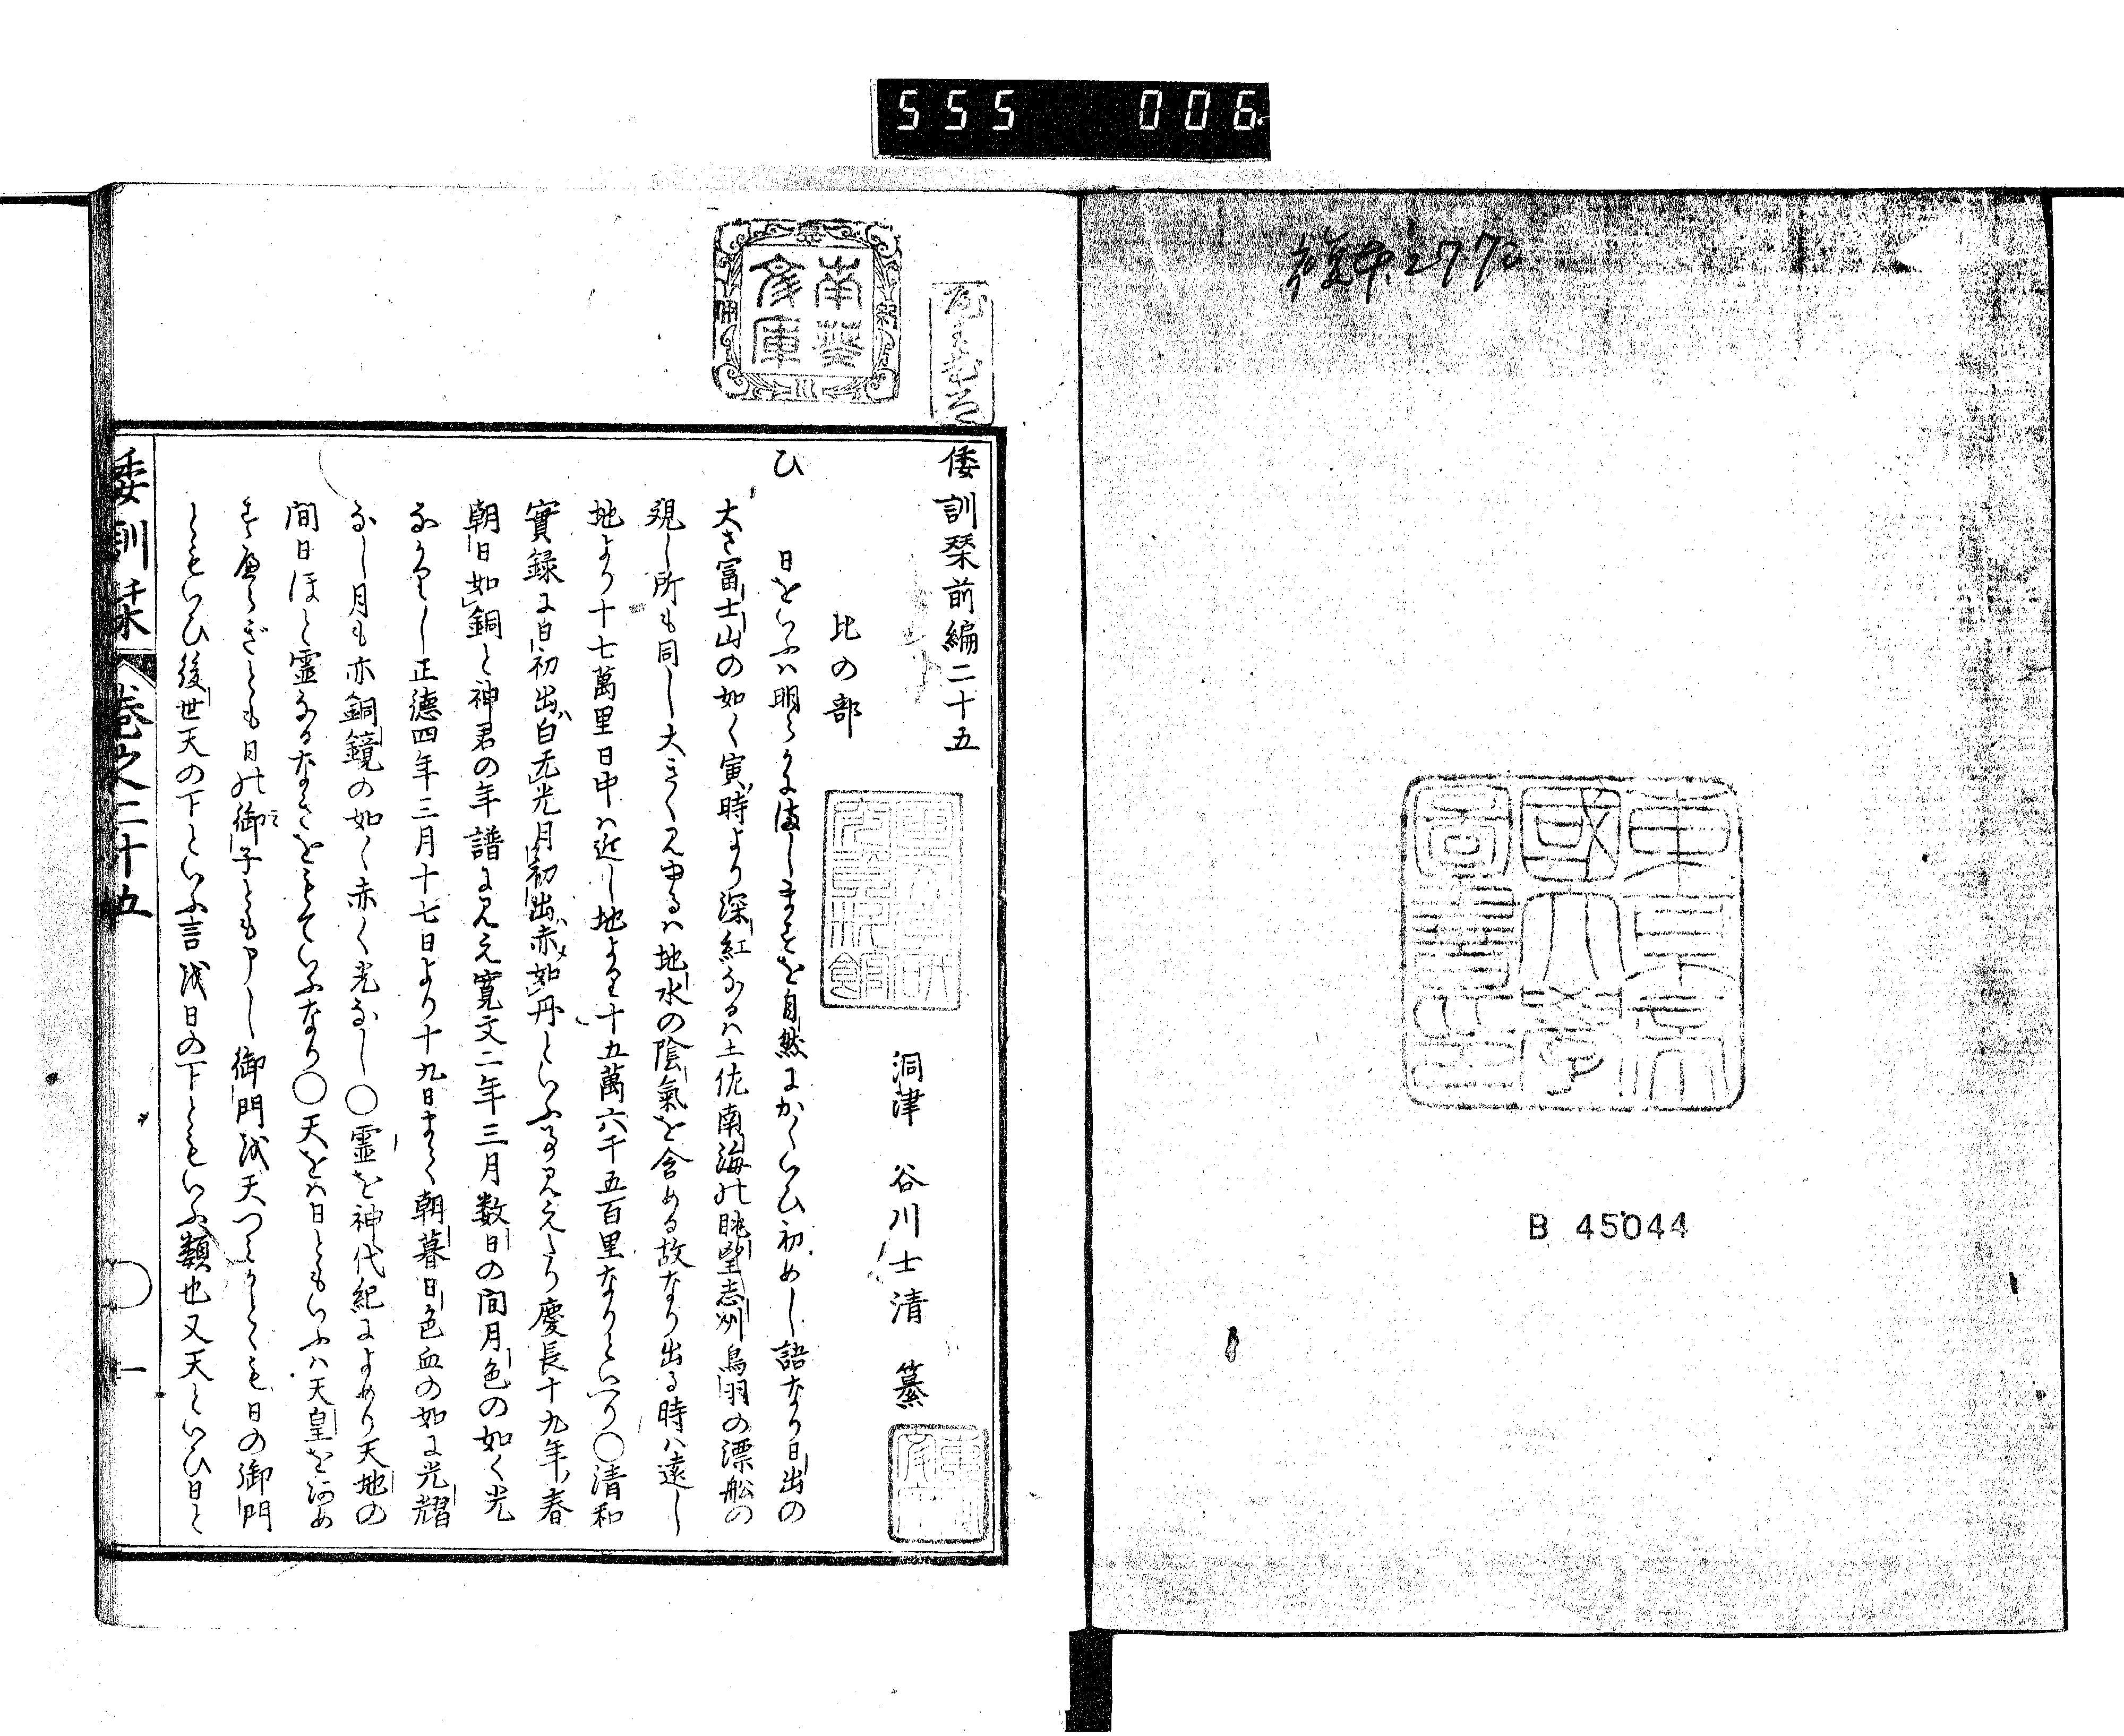 555 006
B 45044
東京
國大學
圖書之
南葵
文庫
倭訓栞前編二十五
洞津 谷川士清 纂
比の部
ひ 日をいふハ明らかにましますを自然にかくいひ初めし語なり日出の
大さ富士山の如く寅時より深紅なるハ土佐南海の眺望志州鳥羽の漂船の
現し所も同し大きく見ゆるハ地水の陰氣を含める故なり出る時ハ遠し
地より十七萬里日中ハ近し地より十五萬六千五百里なりといへり〇清和
實録に日初出白无光月初出赤如丹といふ事見えたり慶長十九年春
朝日如銅と神君の年譜に見え寛文二年三月数日の間月色の如く光
なかりし正徳四年三月十七日より十九日まて朝暮日色血の如に光耀
なし月も亦銅鏡の如く赤く光なし〇霊を神代紀によめり天地の
間日ほと霊なるなきをもていふなり〇天をハ日ともいふハ天皇を
とも日の御子とも申し御門を天つみかとゝも日の御門
ともいひ後世天の下といふ言を日の下ともいふ類也又天といひ日と
倭訓栞 巻之二十五 一